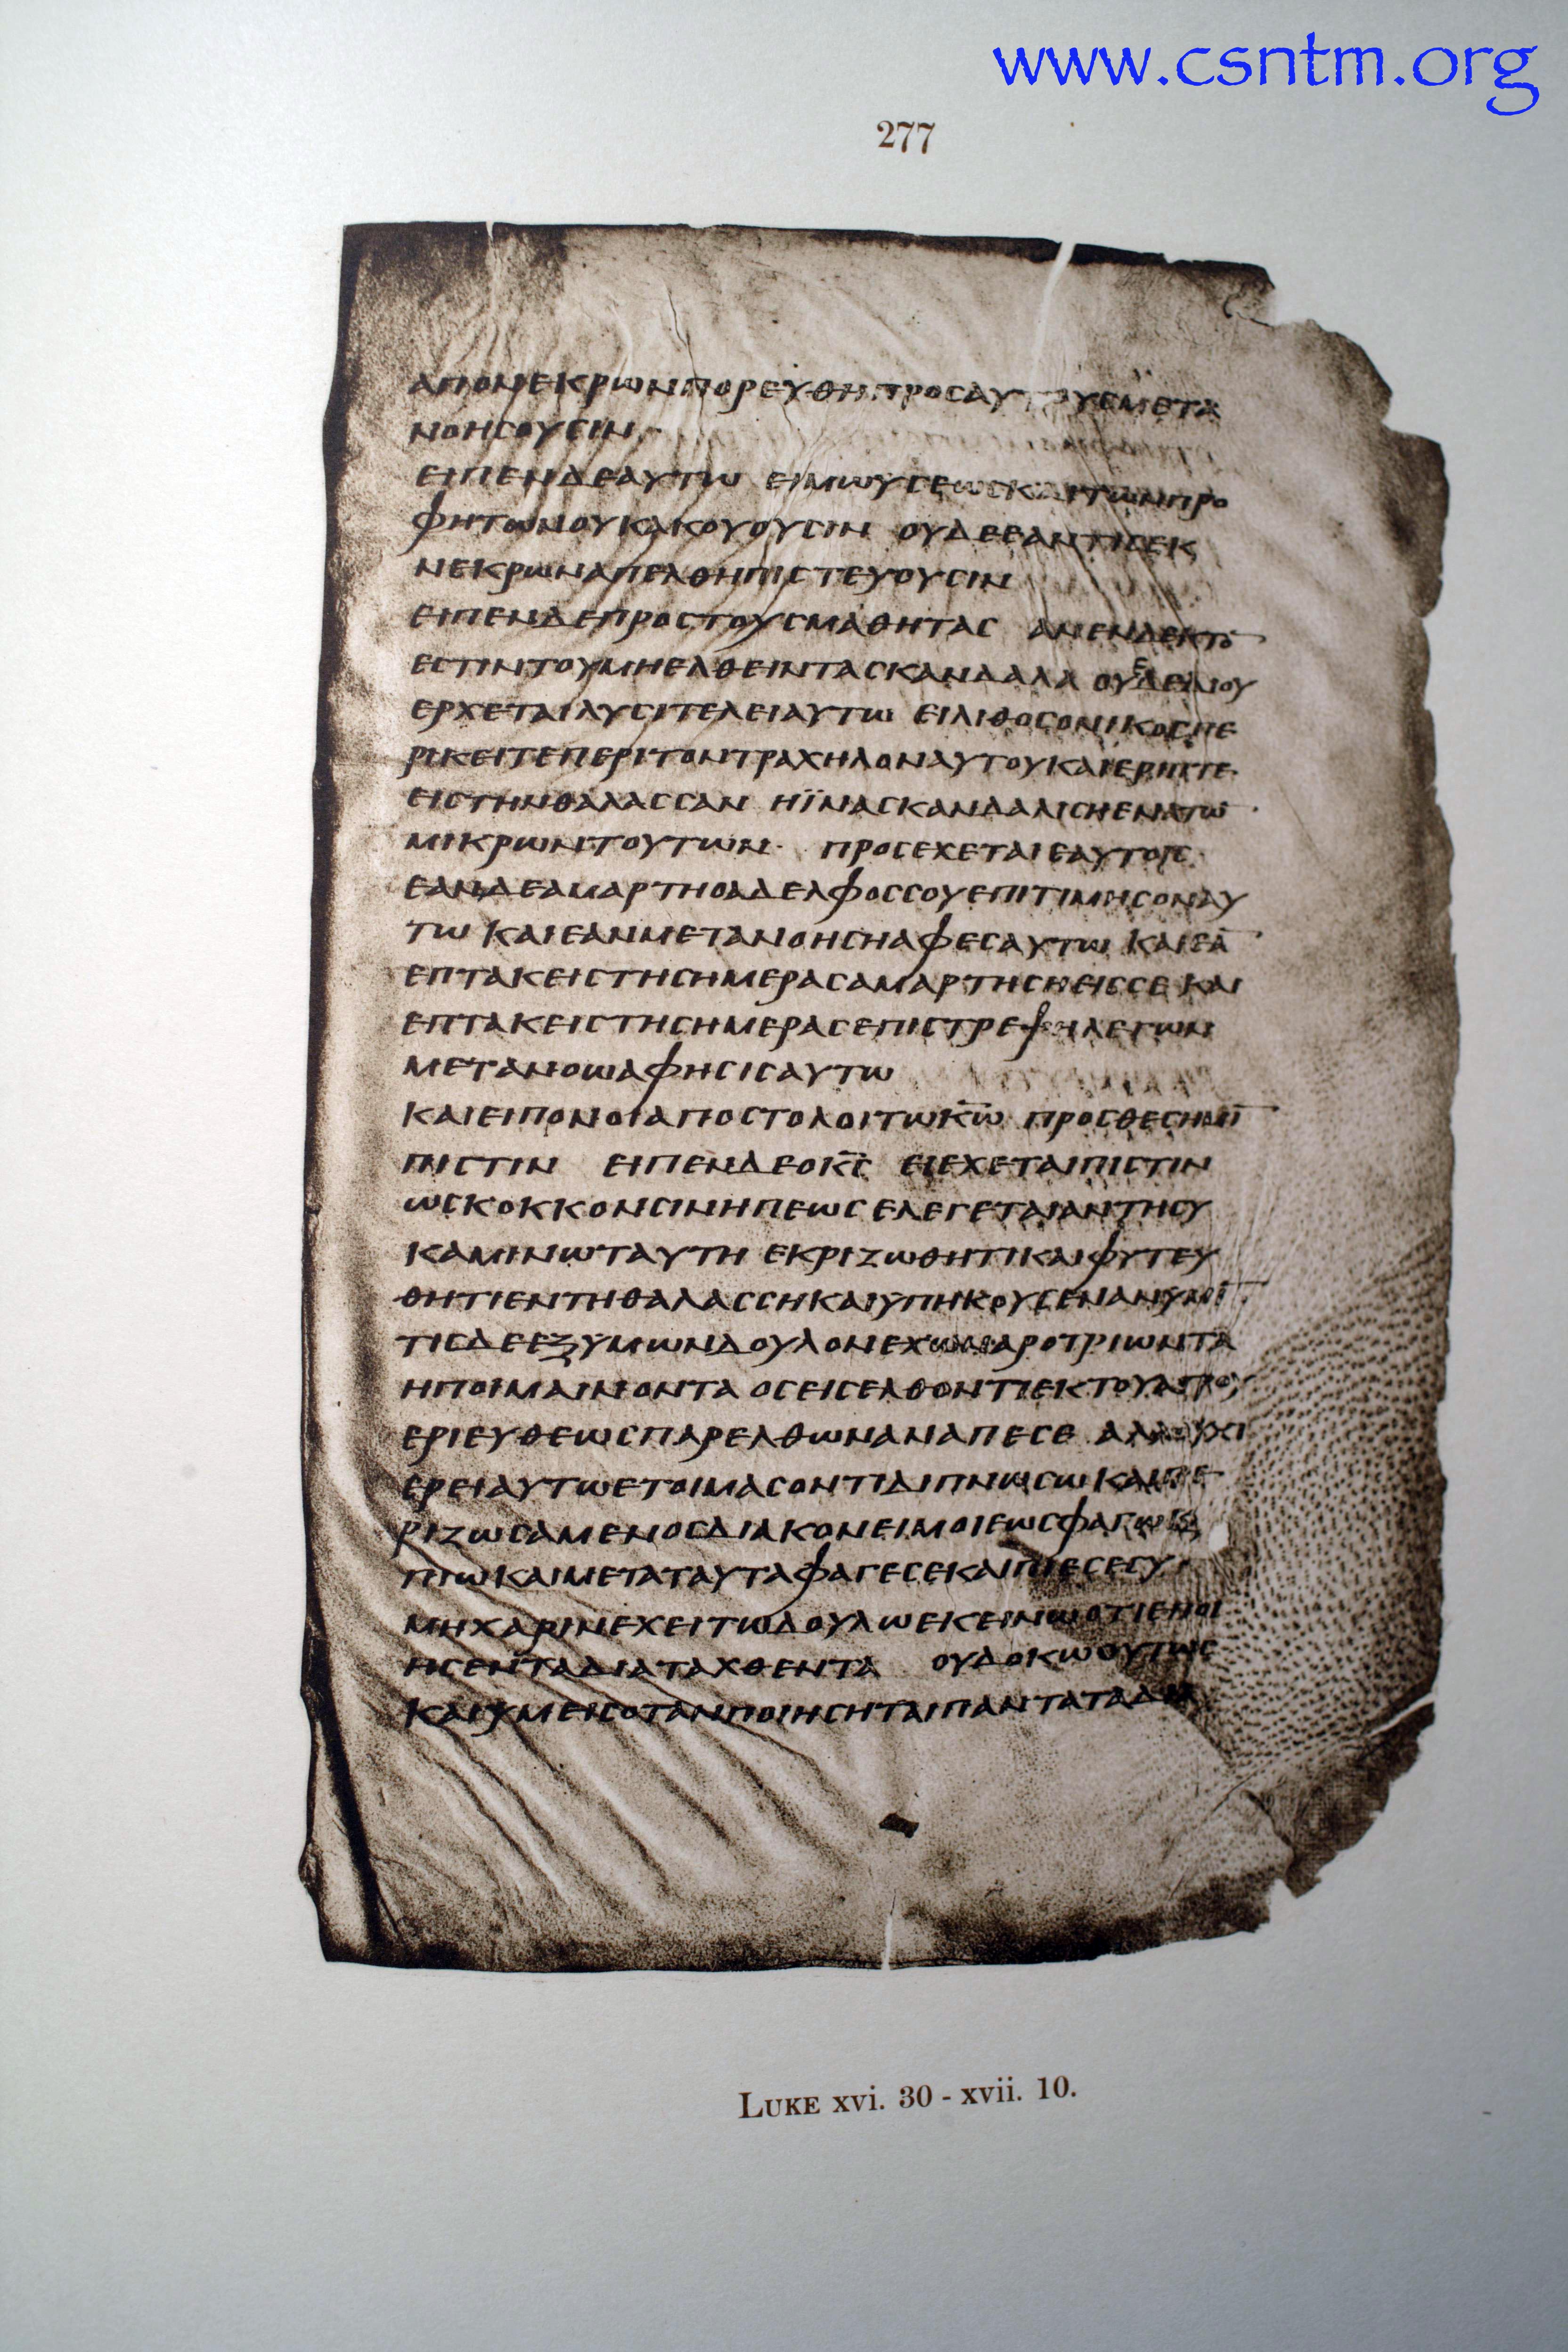 www.csntm.org
277
ΑΠΟΝΕΚΡΩΝΠΟΡΕΥΘΗΠΡΟΣΑΥΤΟΥΣΜΕΤΑ
ΝΟΗΣΟΥΣΙΝ
ΕΙΠΕΝΔΕΑΥΤΩ ΕΙΜΩΥΣΕΩΣΚΑΙΤΩΝΠΡΟ
ΦΗΤΩΝΟΥΚΑΚΟΥΟΥΣΙΝ ΟΥΔΕΕΑΝΤΙΣΕΚ
ΝΕΚΡΩΝΑΠΕΛΘΗΠΙΣΤΕΥΟΥΣΙΝ
ΕΙΠΕΝΔΕΠΡΟΣΤΟΥΣΜΑΘΗΤΑΣ ΑΝΕΝΔΕΚΤΟ̅
ΕΣΤΙΝΤΟΥΜΗΕΛΘΕΙΝΤΑΣΚΑΝΔΑΛΑ ΟΥΕΔΕΔΙΟΥ
ΕΡΧΕΤΑΙΛΥΣΙΤΕΛΕΙΑΥΤΩ ΕΙΛΙΘΟΣΟΝΙΚΟΣΠΕ
ΡΙΚΕΙΤΕΠΕΡΙΤΟΝΤΡΑΧΗΛΟΝΑΥΤΟΥΚΑΙΕΡΙΠΤΕ
ΕΙΣΤΗΝΘΑΛΑΣΣΑΝ ΗΪΝΑΣΚΑΝΔΑΛΙΣΗΕΝΑΤΩ̅
ΜΙΚΡΩΝΤΟΥΤΩΝ· ΠΡΟΣΕΧΕΤΑΙΕΑΥΤΟΙΣ
ΕΑΝΔΕΑΜΑΡΤΗΟΑΔΕΛΦΟΣΣΟΥΕΠΙΤΙΜΗΣΟΝΑΥ
ΤΩ ΚΑΙΕΑΝΜΕΤΑΝΟΗΣΗΑΦΕΣΑΥΤΩ ΚΑΙΕΑ̅
ΕΠΤΑΚΕΙΣΤΗΣΗΜΕΡΑΣΑΜΑΡΤΗΣΗΕΙΣΣΕ ΚΑΙ
ΕΠΤΑΚΕΙΣΤΗΣΗΜΕΡΑΣΕΠΙΣΤΡΕΨΗΛΕΓΩΝ
ΜΕΤΑΝΟΩΑΦΗΣΙΣΑΥΤΩ
ΚΑΙΕΙΠΟΝΟΙΑΠΟΣΤΟΛΟΙΤΩΚ̅Ω̅ ΠΡΟΣΘΕΣΗΜΙ̅
ΠΙΣΤΙΝ ΕΙΠΕΝΔΕΟΚ̅Σ̅ ΕΙΕΧΕΤΑΙΠΙΣΤΙΝ
ΩΣΚΟΚΚΟΝΣΙΝΗΠΕΩΣΕΛΕΓΕΤΑΙΑΝΤΗΣΥ
ΚΑΜΙΝΩΤΑΥΤΗ ΕΚΡΙΖΩΘΗΤΙΚΑΙΦΥΤΕΥ
ΘΗΤΙΕΝΤΗΘΑΛΑΣΣΗΚΑΙΥΠΗΚΟΥΣΕΝΑΝΥΜΙ̅
ΤΙΣΔΕΕΞΥΜΩΝΔΟΥΛΟΝΕΧΩΝΑΡΟΤΡΙΩΝΤΑ
ΗΠΟΙΜΑΙΝΟΝΤΑ ΟΣΕΙΣΕΛΘΟΝΤΙΕΚΤΟΥΑΓΡΟΥ
ΕΡΙΕΥΘΕΩΣΠΑΡΕΛΘΩΝΑΝΑΠΕΣΕ ΑΛΛΟΥΧΙ
ΕΡΕΙΑΥΤΩΕΤΟΙΜΑΣΟΝΤΙΔΙΠΝΗΣΩΚΑΙΠΕ
ΡΙΖΩΣΑΜΕΝΟΣΔΙΑΚΟΝΕΙΜΟΙΕΩΣΦΑΓΩΚΑΙ
ΠΙΩΚΑΙΜΕΤΑΤΑΥΤΑΦΑΓΕΣΕΚΑΙΠΙΕΣΕΣΥ
ΜΗΧΑΡΙΝΕΧΕΙΤΩΔΟΥΛΩΕΚΕΙΝΩΟΤΙΕΠΟΙ
ΗΣΕΝΤΑΔΙΑΤΑΧΘΕΝΤΑ ΟΥΔΟΚΩΟΥΤΩΣ
ΚΑΙΥΜΕΙΣΟΤΑΝΠΟΙΗΣΗΤΑΙΠΑΝΤΑΤΑΔΙΑ
LUKE xvi. 30 - xvii. 10.